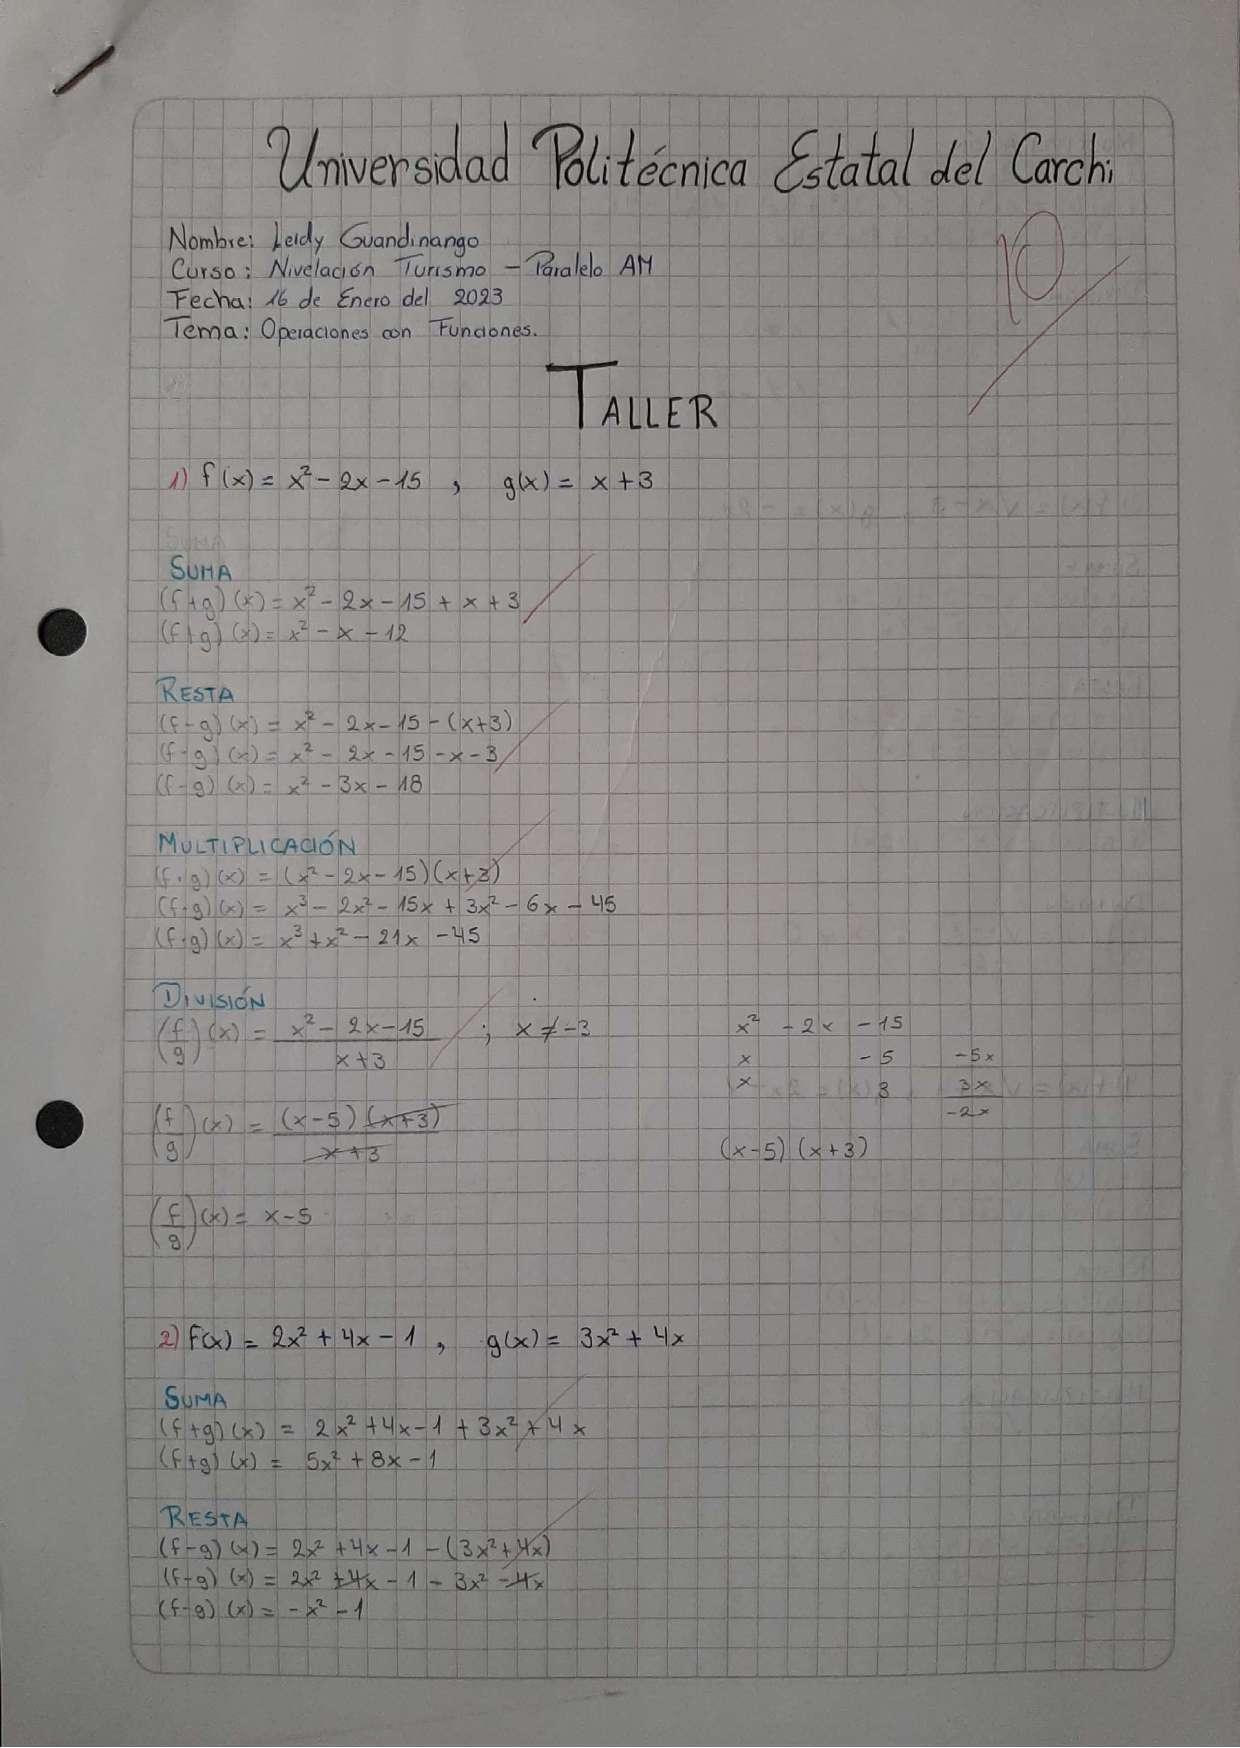 Universidad Politécnica Estatal del Carchi
Nombre: Leidy Guandinango
Curso: Nivelación Turismo - Paralelo AM
Fecha: 16 de Enero del 2023
Tema: Operaciones con Funciones.
10
TALLER
1) f(x) = x² - 2x - 15 , g(x) = x + 3
SUMA
(f+g)(x) = x² - 2x - 15 + x + 3
(f+g)(x) = x² - x - 12
RESTA
(f-g)(x) = x² - 2x - 15 - (x+3)
(f-g)(x) = x² - 2x - 15 - x - 3
(f-g)(x) = x² - 3x - 18
MULTIPLICACIÓN
(f·g)(x) = (x² - 2x - 15)(x+3)
(f·g)(x) = x³ - 2x² - 15x + 3x² - 6x - 45
(f·g)(x) = x³ + x² - 21x - 45
DIVISIÓN
(f/g)(x) = x² - 2x - 15 / x + 3 ; x ≠ -3
x² - 2x - 15
x - 5 -5x
x 3 3x
-2x
(x-5)(x+3)
(f/g)(x) = (x-5)(x+3) / x+3
(f/g)(x) = x-5
2) f(x) = 2x² + 4x - 1 , g(x) = 3x² + 4x
SUMA
(f+g)(x) = 2x² + 4x - 1 + 3x² + 4x
(f+g)(x) = 5x² + 8x - 1
RESTA
(f-g)(x) = 2x² + 4x - 1 - (3x² + 4x)
(f-g)(x) = 2x² + 4x - 1 - 3x² - 4x
(f-g)(x) = -x² - 1